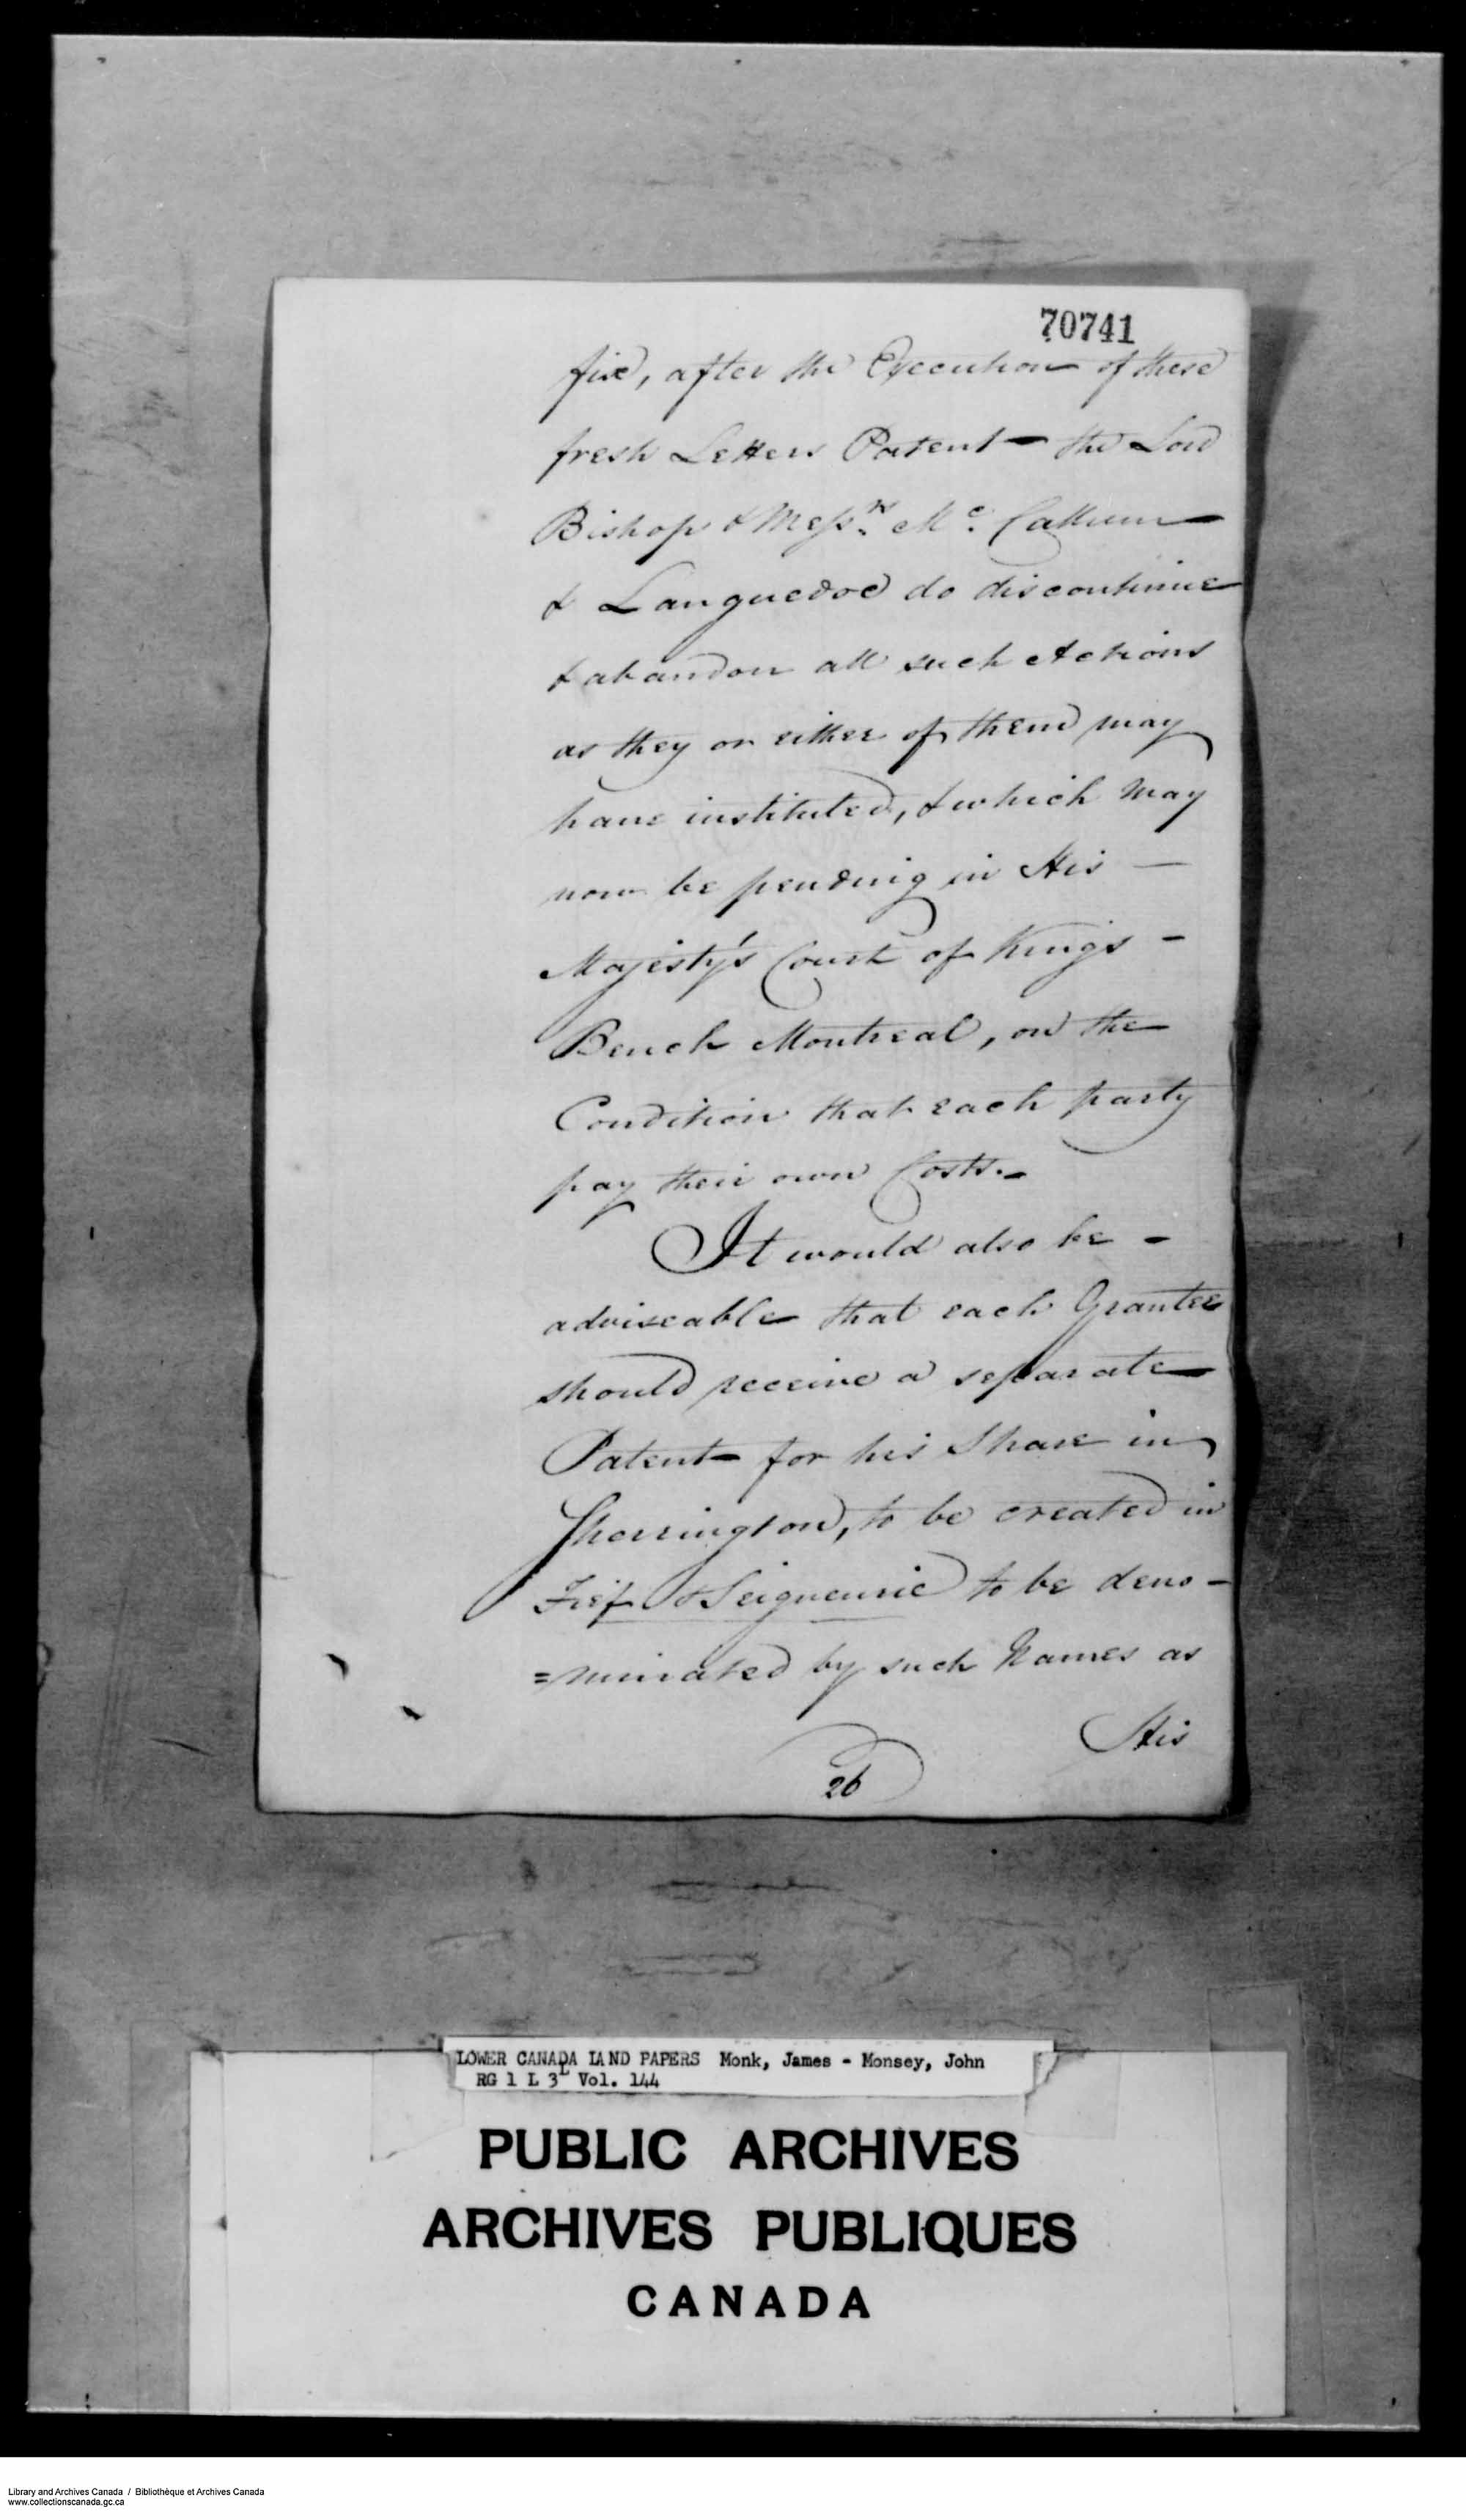 70741
fix, after the Execution of these
fresh Letters Patent - the Lord
Bishop & Messrs. Mc. Callum
& Languedoc do discontinue
& abandon all such Actions
as they or either of them may
have instituted, & which may
now be pending in His -
Majesty's Court of Kings -
Bench Montreal, on the
Condition that each party
pay their own Costs. -
It would also be -
adviseable that each Grantee
should receive a separate
Patent for his Share in
Sherrington, to be created in
Fief & Seigneurie to be deno-
=minated by such Names as
His
26
LOWER CANADA LAND PAPERS Monk, James - Monsey, John
RG 1 L 3L Vol. 144
PUBLIC ARCHIVES
ARCHIVES PUBLIQUES
CANADA
Library and Archives Canada / Bibliothèque et Archives Canada
www.collectionscanada.gc.ca